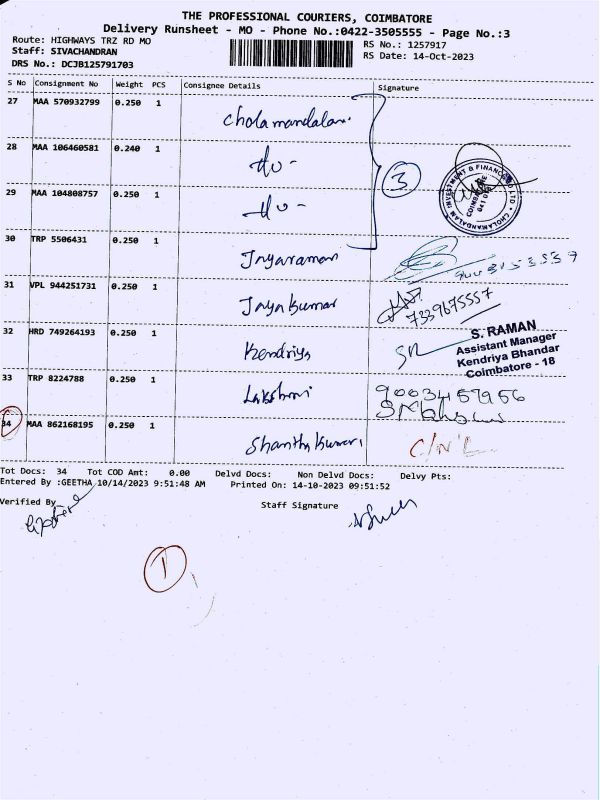 THE PROFESSIONAL COURIERS, COIMBATORE
Delivery Runsheet - MO - Phone No.:0422-3505555 - Page No.:3
Route: HIGHWAYS TRZ RD MO
RS No.: 1257917
Staff: SIVACHANDRAN
RS Date: 14-Oct-2023
DRS No.: DCJB125791703
S No Consignment No Weight PCS Consignee Details Signature
27 MAA 570932799 0.250 1 Cholamandalam
28 MAA 106460581 0.240 1 do -
3
INVESTMENT & FINANCE CO LTD * CHOLAMANDALAM
COIMBATORE
29 MAA 104808757 0.250 1 do -
30 TRP 5506431 0.250 1 Jayaraman
31 VPL 944251731 0.250 1 Jaya Kumar 7339675557
32 HRD 749264193 0.250 1 Kendriya SR
S. RAMAN
Assistant Manager
Kendriya Bhandar
Coimbatore - 18
33 TRP 8224788 0.250 1 Lakshmi 9003457956
34 MAA 862168195 0.250 1 Shantha Kumari C/N'L
Tot Docs: 34 Tot COD Amt: 0.00 Delvd Docs: Non Delvd Docs: Delvy Pts:
Entered By :GEETHA 10/14/2023 9:51:48 AM Printed On: 14-10-2023 09:51:52
Verified By
Staff Signature
1